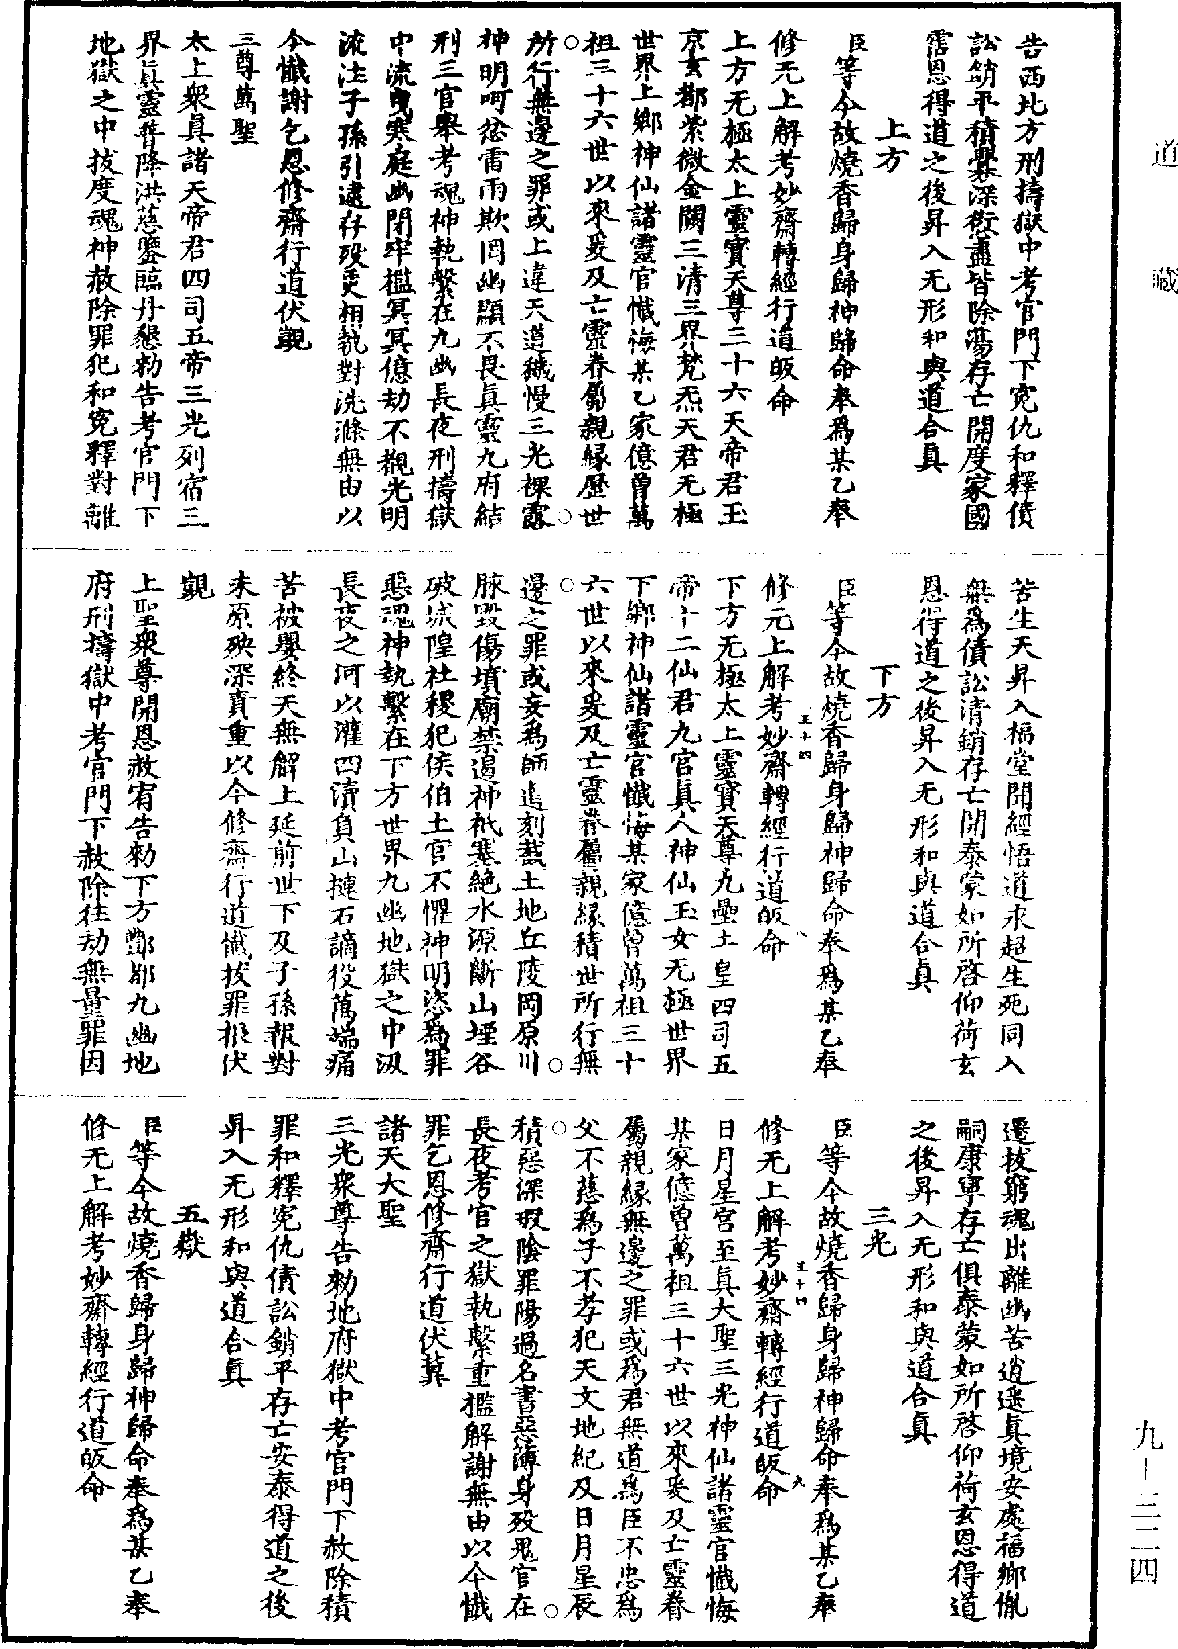 道藏
告西北方刑擣獄中考官門下寃仇和釋債
訟銷平積釁深愆盡皆除蕩存亡開度家國
霑恩得道之後昇入无形和與道合真
上方
臣等今故燒香歸身歸神歸命奉爲某乙奉
修无上解考妙齋轉經行道皈命
上方无極太上靈寶天尊三十六天帝君玉
京玄都紫微金闕三清三界梵炁天君无極
世界上鄉神仙諸靈官懺悔某乙家億曾萬
祖三十六世以來爰及亡靈眷屬親緣歷世
所行無邊之罪或上違天道穢慢三光裸露
神明呵忿雷雨欺罔幽顯不畏眞靈九府結
刑三官舉考魂神執繫在九幽長夜刑擣獄
中流曳寒庭幽閉牢檻冥冥億劫不覩光明
流注子孫引逮存殁更相執對洗滌無由以
今懺謝乞恩修齋行道伏覬
三尊萬聖
太上衆真諸天帝君四司五帝三光列宿三
界眞靈普降洪慈鑒臨丹懇勑告考官門下
地獄之中拔度魂神赦除罪犯和寃釋對離
苦生天昇入福堂聞經悟道永超生死同入
無爲債訟清銷存亡開泰蒙如所啓仰荷玄
恩得道之後昇入无形和與道合真
下方
臣等今故燒香歸身歸神歸命奉爲某乙奉
修元上解考妙齋轉經行道皈命
下方无極太上靈寶天尊九壘土皇四司五
帝十二仙君九宮真人神仙玉女无極世界
下鄉神仙諸靈官懺悔某家億曾萬祖三十
六世以來爰及亡靈眷屬親緣積世所行無
邊之罪或妄爲師巫刻截土地丘陵岡原川
脉毀傷墳廟禁遏神祇塞絶水源斷山堙谷
破城隍社稷犯侯伯土官不懼神明恣爲罪
惡魂神執繫在下方世界九幽地獄之中汲
長夜之河以灌四瀆負山揵石謫役萬端痛
苦被嬰終天無解上延前世下及子孫報對
未原殃深責重以今修齋行道懺拔罪根伏
覬
上聖衆尊開恩赦宥告勑下方酆都九幽地
府刑擣獄中考官門下赦除往劫無量罪因
遷拔窮魂出離幽苦逍遥真境安處福鄉胤
嗣康寧存亡俱泰蒙如所啓仰荷玄恩得道
之後昇入无形和與道合眞
三光
臣等今故燒香歸身歸神歸命奉爲某乙奉
修无上解考妙齋轉經行道皈命
日月星宮至眞大聖三光神仙諸靈官懺悔
某家億曾萬祖三十六世以來爰及亡靈眷
屬親緣無邊之罪或爲君無道爲臣不忠爲
父不慈爲子不孝犯天文地紀及日月星辰
積惡深瑕陰罪陽過名書惡簿身殁鬼官在
長夜考官之獄執繫重檻解謝無由以今懺
罪乞恩修齋行道伏冀
諸天大聖
三光衆尊告勑地府獄中考官門下赦除積
罪和釋寃仇債訟銷平存亡安泰得道之後
昇入无形和與道合眞
五嶽
臣等今故燒香歸身歸神歸命奉爲某乙奉
修无上解考妙齋轉經行道皈命
九-三二四